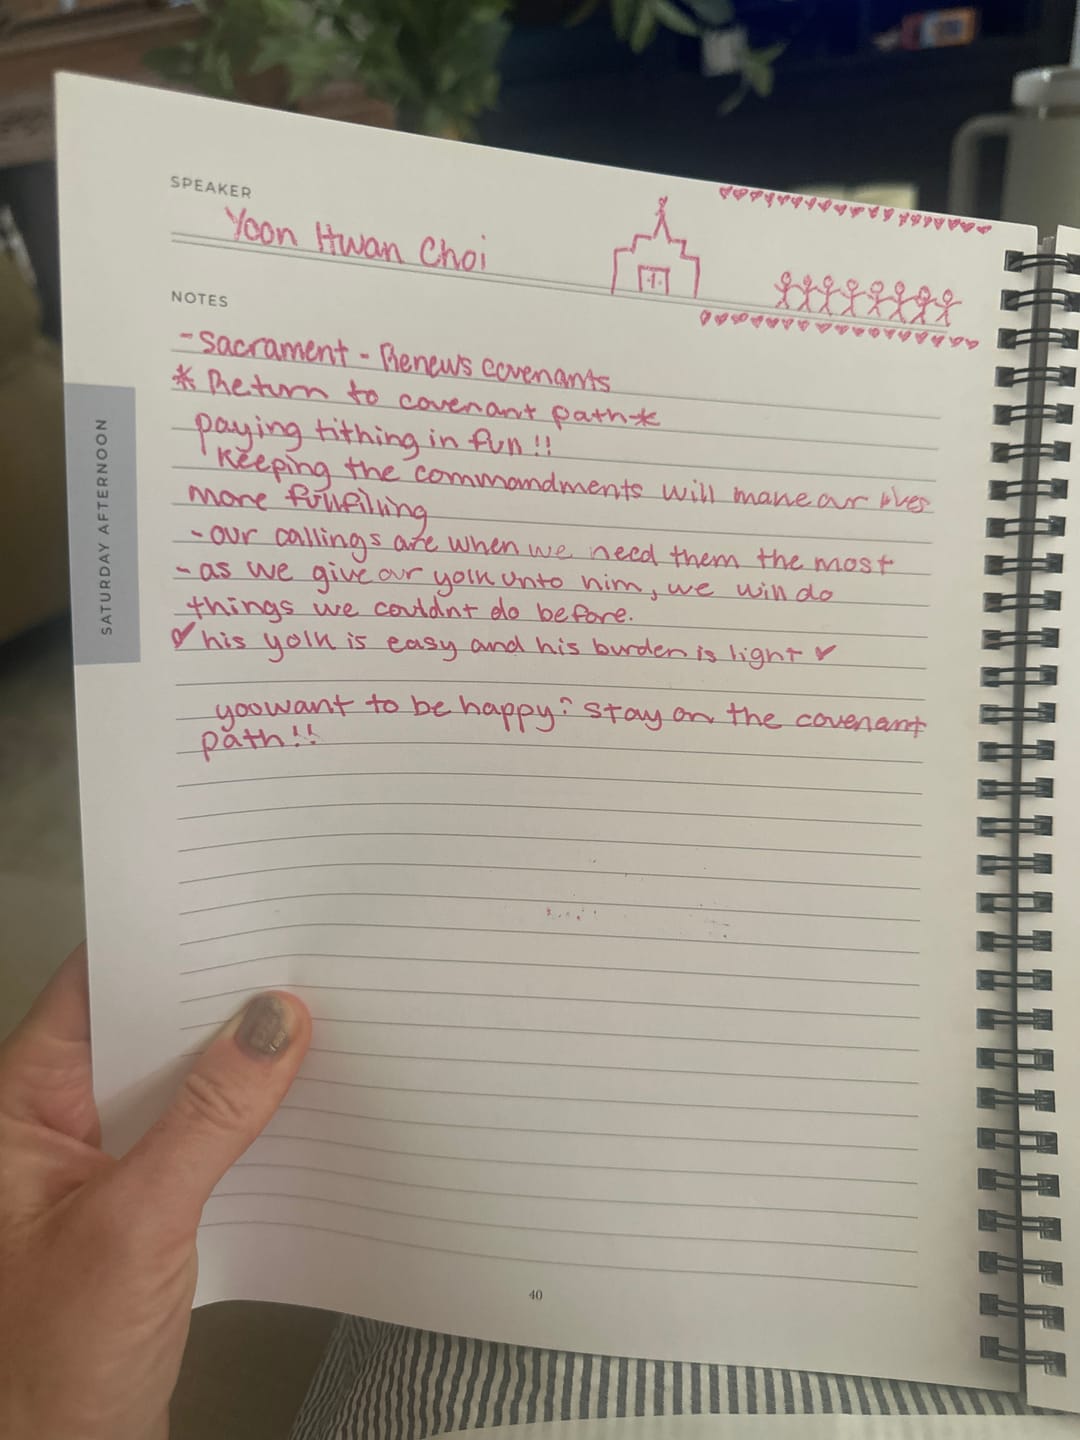 SPEAKER
Yoon Hwan Choi
NOTES
- Sacrament - Renews covenants
* Return to covenant path *
paying tithing in fun!!
Keeping the commandments will make our lives
more fullfilling
- our callings are when we need them the most
- as we give our yolk unto him, we will do
things we couldnt do before.
his yolk is easy and his burden is light
you want to be happy? Stay on the covenant
path!!
SATURDAY AFTERNOON
40